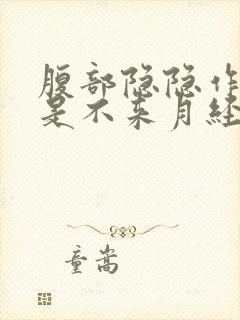 腹部隐隐作
是不来月经
童嵩